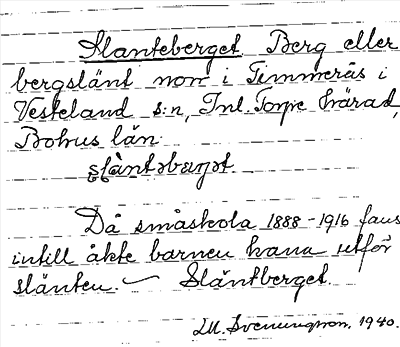 Slanteberget. Berg eller
bergslänt norr i Timmerås i
Vesteland s:n, Inl. Torpe härad,
Bohus län.
Då småskola 1888-1916 fans
intill åkte barnen kana utför
slänten. — Släntberget.
LM. Svenungson, 1940.